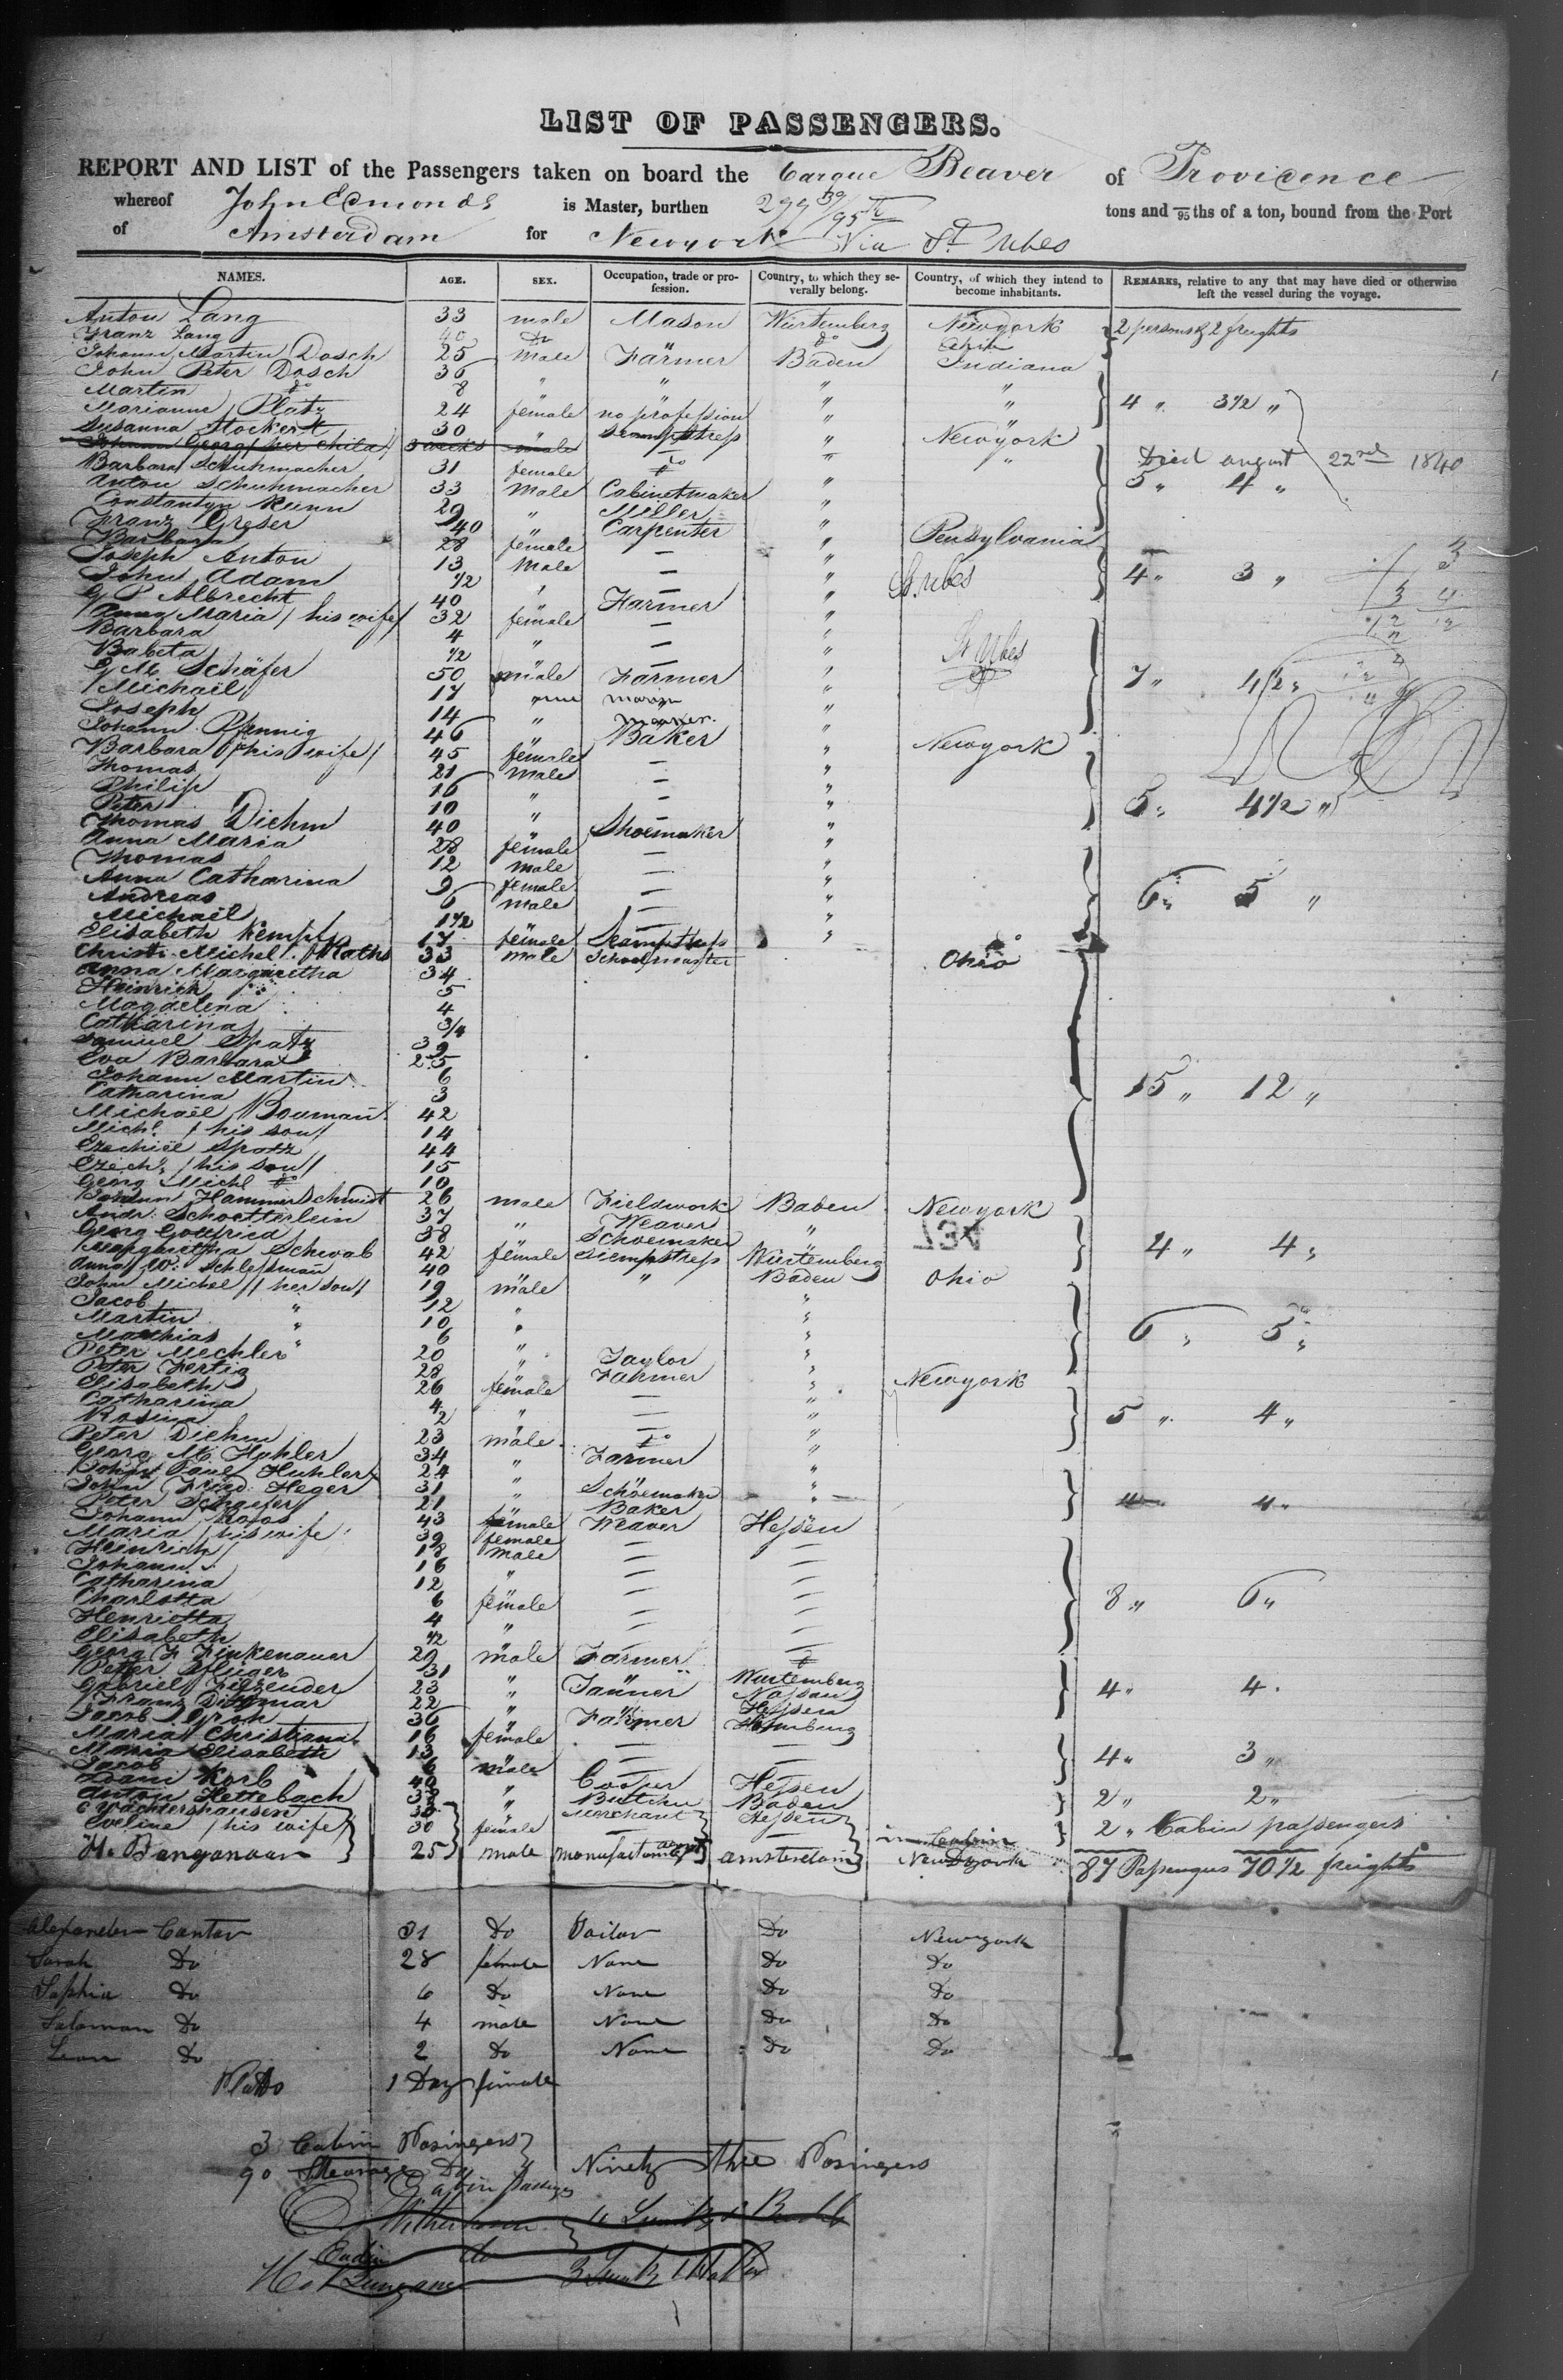 LIST OF PASSENGERS.
REPORT AND LIST of the Passengers taken on board the Barque Beaver of Providence
whereof John Edmonds is Master, burthen 299 39/95th tons and /95 ths of a ton, bound from the Port
of Amsterdam for Newyork Via St Ubes
NAMES. AGE. SEX. Occupation, trade or profession. Country, to which they severally belong. Country, of which they intend to become inhabitants. REMARKS, relative to any that may have died or otherwise left the vessel during the voyage.
Anton Lang 33 male Mason Würtemberg Newyork 2 persons & 2 freights
Franz Lang 40 do do Ohio
Johann Martin Dosch 25 male Farmer Baden Indiana
John Peter Dosch 36 " " " "
Martin do 8
Marianne Platz 24 female no profession " " 4 " 3 1/2 "
Susanna Stockert 30 " seampstress " Newyork
Johann Georg / her child / 3 weeks male — " " Died august 22nd 1840
Barbara Schuhmacher 31 female do " 5 " 4 "
Anton Schuhmacher 33 male Cabinetmaker "
Constantyn Kunn 29 " Miller "
Franz Greser 40 " Carpenter " Pensylvania
Barbara 28 female — "
Joseph Anton 13 male — " 4 " 3 "
John Adam 1/2 " — " St. Ubes
G P Albrecht 40 Farmer "
Anna Maria / his wife / 32 female — "
Barbara 4 " — "
Babeta 1/2 " — " St Ubes
G M Schäfer 50 male Farmer " 7 " 4 1/2 "
Michaël 17 "
Joseph 14 " "
Johann Pfennig 46 " Baker " Newyork
Barbara / his wife / 45 female — "
Thomas 21 male — "
Philip 16 " — "
Peter 10 " — " 5 " 4 1/2 "
Thomas Diehm 40 Shoemaker "
Anna Maria 28 female — "
Thomas 12 male — "
Anna Catharina 9 female — "
Andreas 6 male — " 6 " 5 "
Michaël 1 1/2 — "
Elisabeth Kempf 17 female Seampstress "
Christ. Michel 33 male Schoolmaster Ohio
Anna Margaretha 34
Heinrich 5
Magdelena 4
Catharina 3/4
Samuel Spatz 39
Eva Barbara 25
Johann Martin 6 15 " 12 "
Catharina 3
Michaël Bouman 42
Michl / his son / 14
Ezechiël Spatz 44
Ezechl / his son / 15
Georg Michl do 10
Hammerschmidt 26 male Fieldwork Baden Newyork
Andr. Schoetterlein 37 " Weaver "
Georg Gottfried 38 Schoemaker " 4 " 4 "
Margaretha Schwab 42 female Siempstress Würtemberg
Anna W. Schlessman 40 " Baden Ohio
John Michel / her son / 19 male
Jacob " 12 " "
Martin " 10 " "
Mathias " 6 " " 6 " 5 "
Peter Mechler 20 " Taylor "
Peter Fertig 28 " Farmer "
Elisabeth 26 female — " Newyork
Catharina 4 " — "
Rosina 2 " — " 5 " 4 "
Peter Diehm 23 male do "
Georg M Huhler 34 " Farmer "
Johan Paul Huhler 24 " "
John Fried. Heger 31 " Schoemaker "
Peter Schaefer 21 " Baker " 4 " 4 "
Johann 43 Weaver Hessen
Maria / his wife / 39 female
Heinrich 18 male — —
Johann 16 " — —
Catharina 12 — —
Charlotta 6 female — — 8 " 6 "
Henrietta 4 " — —
Elisabeth 1/2 " — —
Georg F Finkenauer 29 male Farmer do
Peter Pflüger 31 " " Würtemberg
Gabriel 23 " Tanner Nassau 4 " 4 "
Franz Dittmar 22 " " Hessen
Jacob 36 " Farmer Homburg
Maria Christiana 16 female — —
Maria Elisabeth 13 " — — 4 " 3 "
Jacob 6 male — —
Adam Korb 40 " Cooper Hessen 2 " 2 "
Anton Hettebach 38 " Butcher Baden
C Wachtershausen 30 Merchant Hessen 2 " Cabin passengers
Eveline / his wife / 30 female — — in Cabin
H. Banganaar 25 male manufactom Amsterdam Newyork 87 Passengers 70 1/2 freights
Alexander Cantor 31 Do Tailor Do Newyork
Sarah Do 28 female None Do Do
Sophia Do 6 Do None Do Do
Saloman Do 4 male None Do Do
Leon Do 2 Do None Do Do
1 Day female
3 Cabin Pasingers
90 Stearage Do Ninety three Pasingers
Cabin Passengers